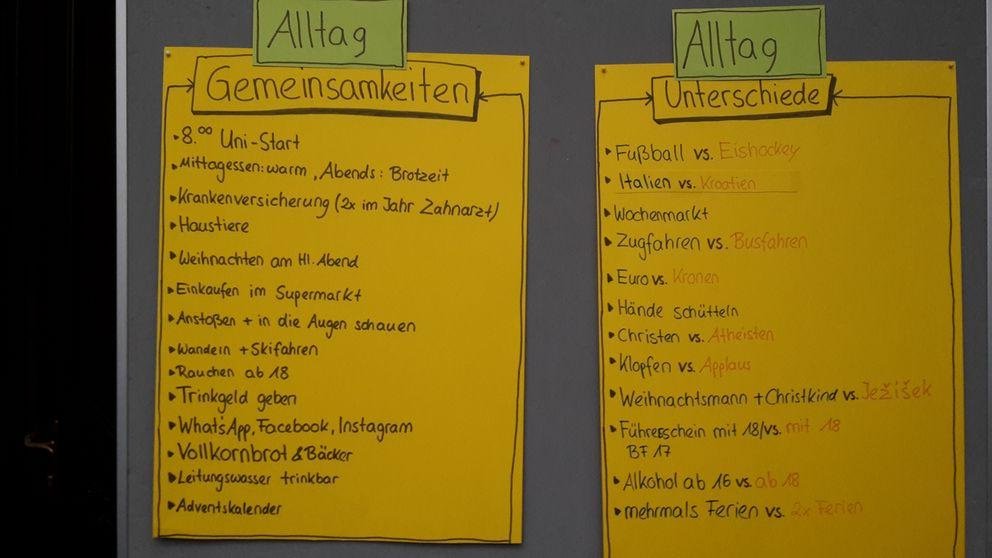 Alltag
Gemeinsamkeiten
8.00 Uni-Start
Mittagessen: warm, Abends: Brotzeit
Krankenversicherung (2x im Jahr Zahnarzt)
Haustiere
Weihnachten am Hl. Abend
Einkaufen im Supermarkt
Anstoßen + in die Augen schauen
Wandern + Skifahren
Rauchen ab 18
Trinkgeld geben
WhatsApp, Facebook, Instagram
Vollkornbrot & Bäcker
Leitungswasser trinkbar
Adventskalender
Alltag
Unterschiede
Fußball vs. Eishockey
Italien vs. Kroatien
Wochenmarkt
Zugfahren vs. Busfahren
Euro vs. Kronen
Hände schütteln
Christen vs. Atheisten
Klopfen vs. Applaus
Weihnachtsmann + Christkind vs. Ježíšek
Führerschein mit 18/vs. mit 18
BF 17
Alkohol ab 16 vs. ab 18
mehrmals Ferien vs. 2x Ferien